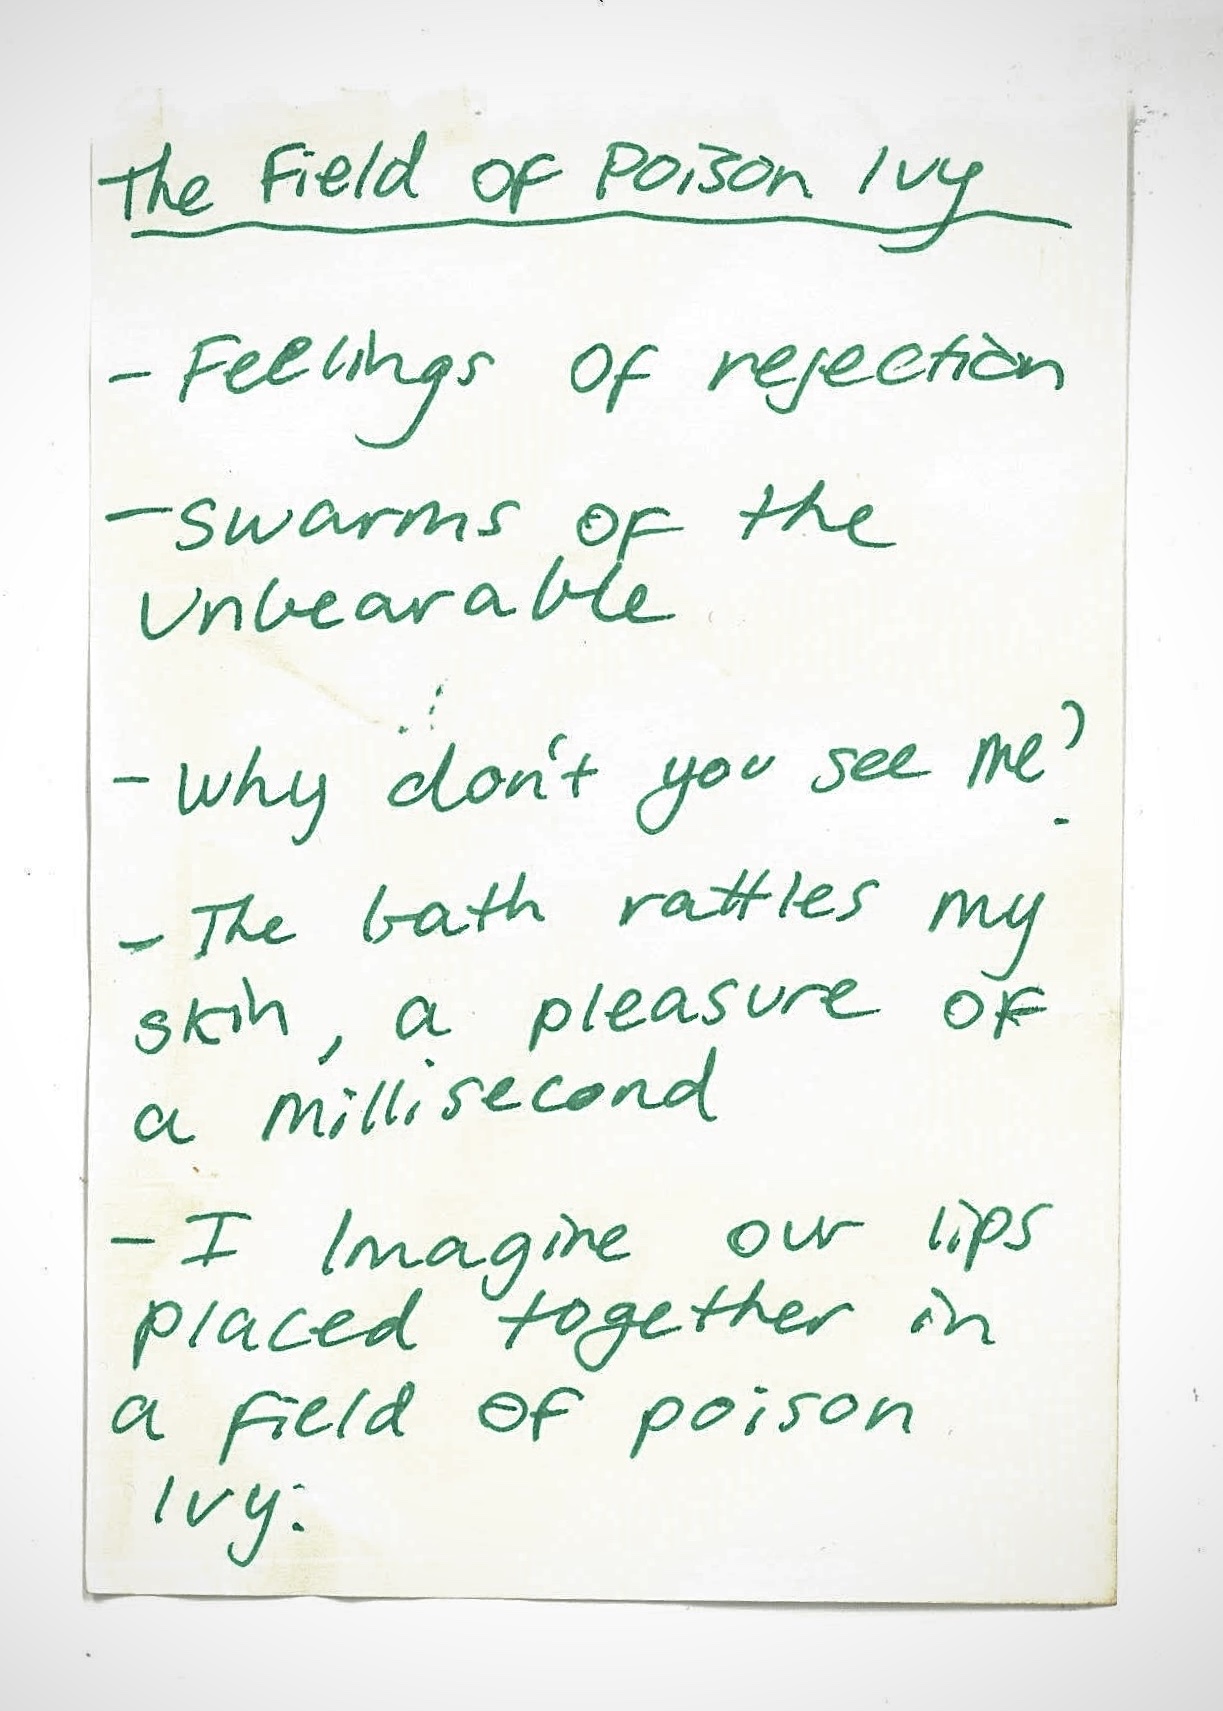 The Field of Poison Ivy
- Feelings of rejection
- Swarms of the
Unbearable
- Why don't you see me?
- The bath rattles my
skin, a pleasure of
a millisecond
- I Imagine our lips
placed together in
a field of poison
Ivy.